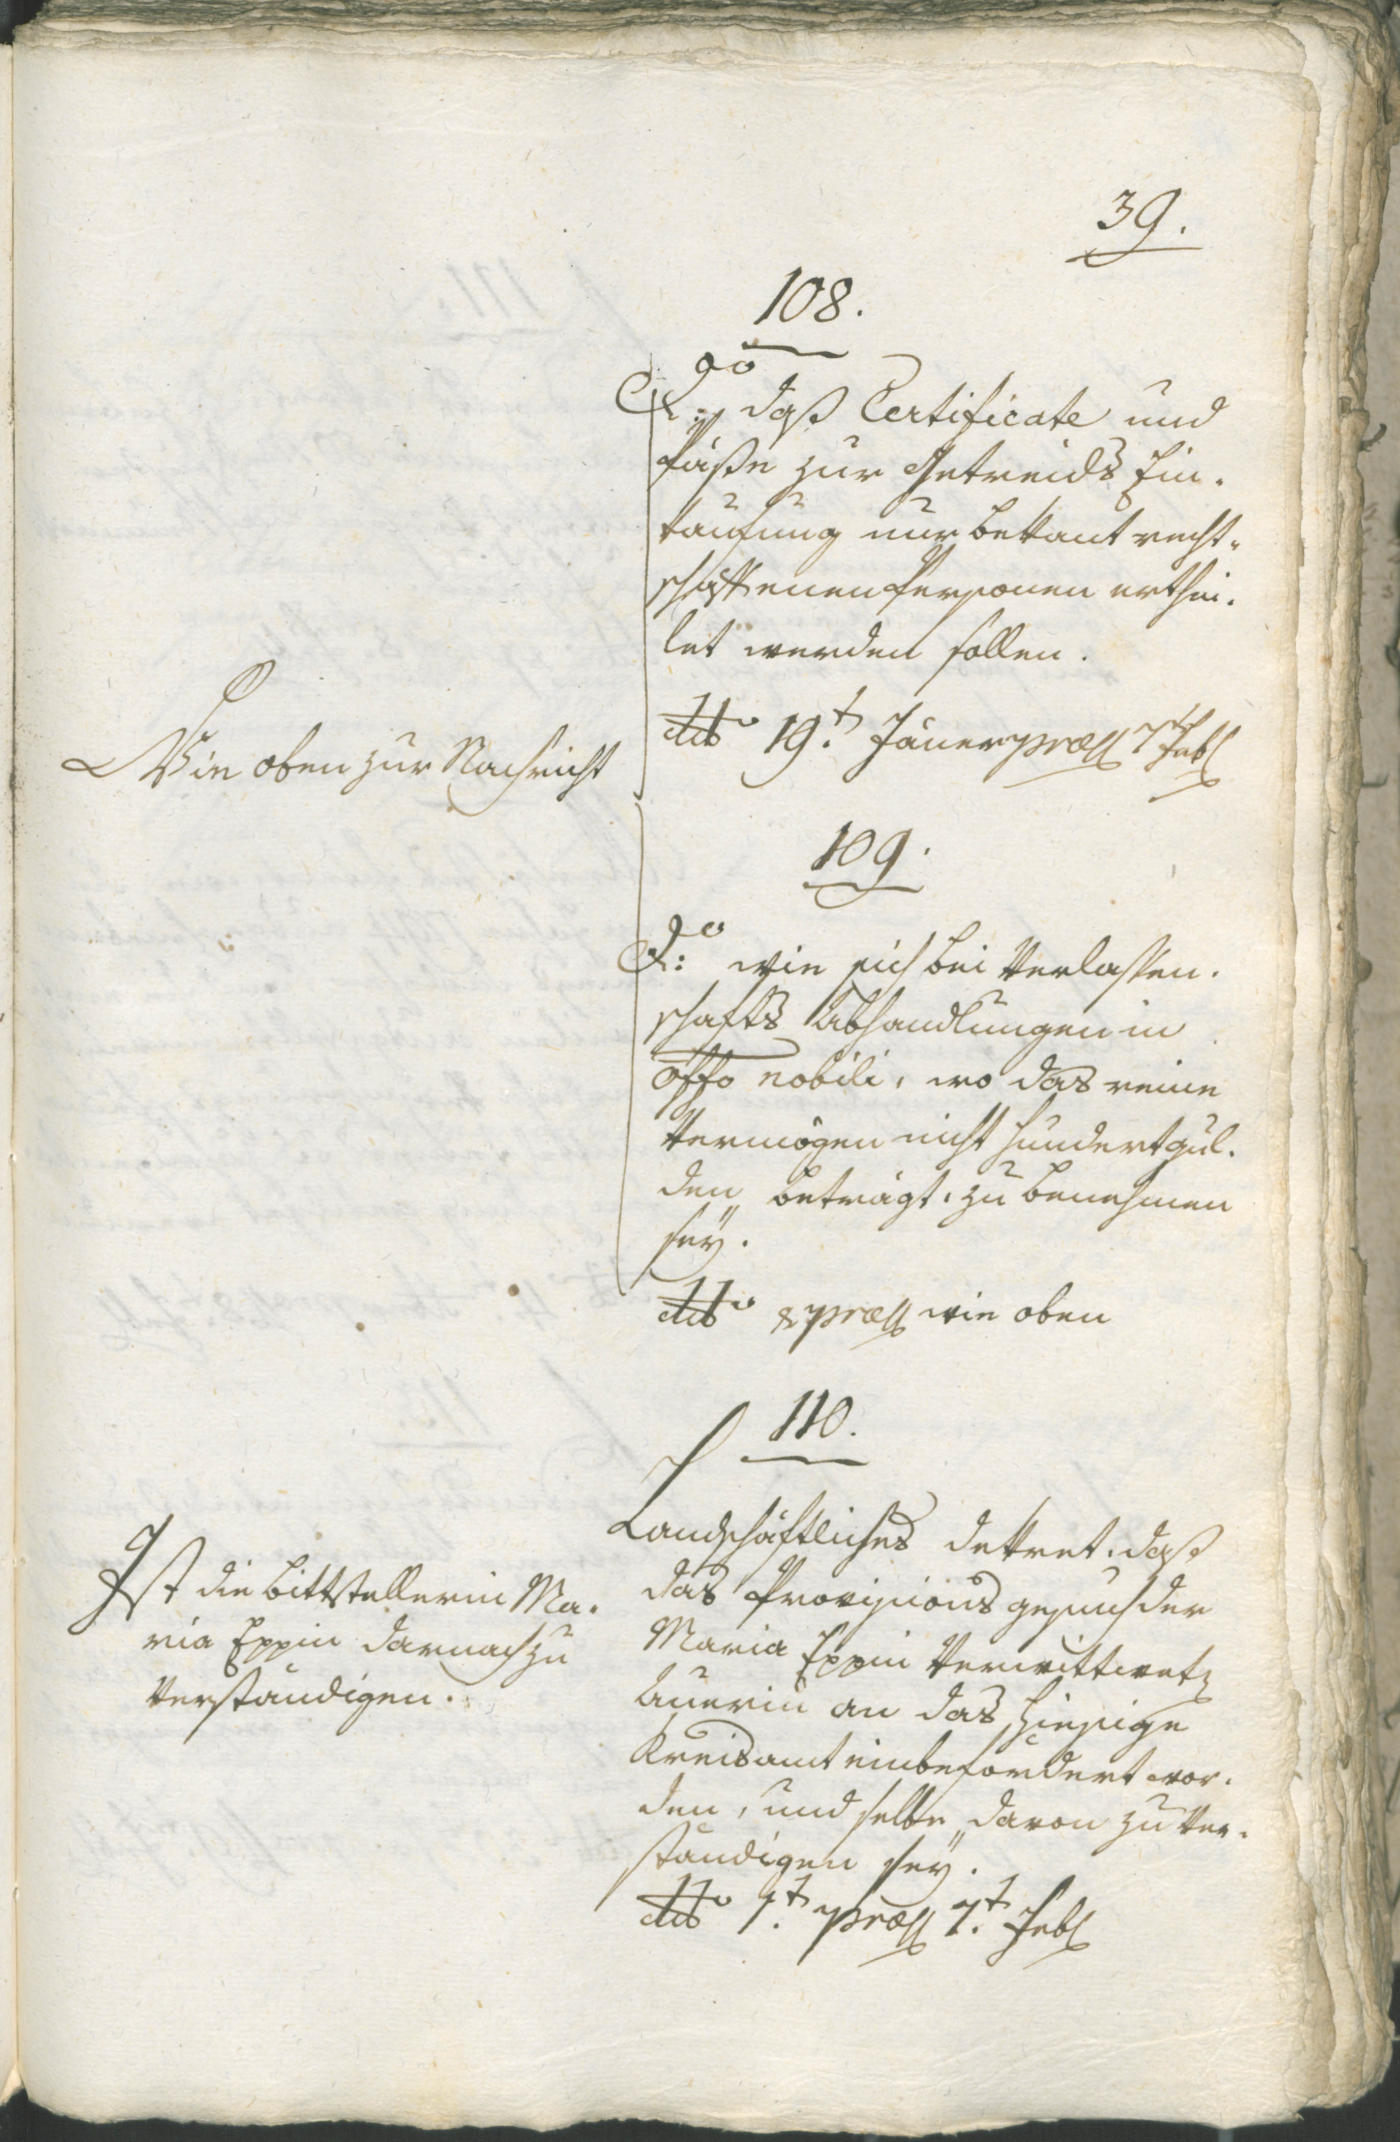 39.
108.
do daß Certificate und
Päße zur Getreids Ein-
kaufung nur bekant recht-
schaffenen Personen erthei-
let werden sollen.
dto 19.t Jäner præs 7t Feb
Wie oben zur Nachricht
109.
do wie sich bei Verlassen-
schafts Abhandlungen in
offo nobili, wo das reine
Vermögen nicht hundert gul-
den beträgt, zu benehmen
seÿ.
dto & præs wie oben
110.
Landschäftliches Dekret, daß
das Provisions gesuch der
Maria Eppin Verwittwete
an das hiesige
Kreisamt einbefördert wor-
den, und selbe davon zu ver-
ständigen seÿ.
dto 1.t præs 7.t Feb
Ist die Bittstellerin Ma-
ria Eppin darnach zu
verständigen.